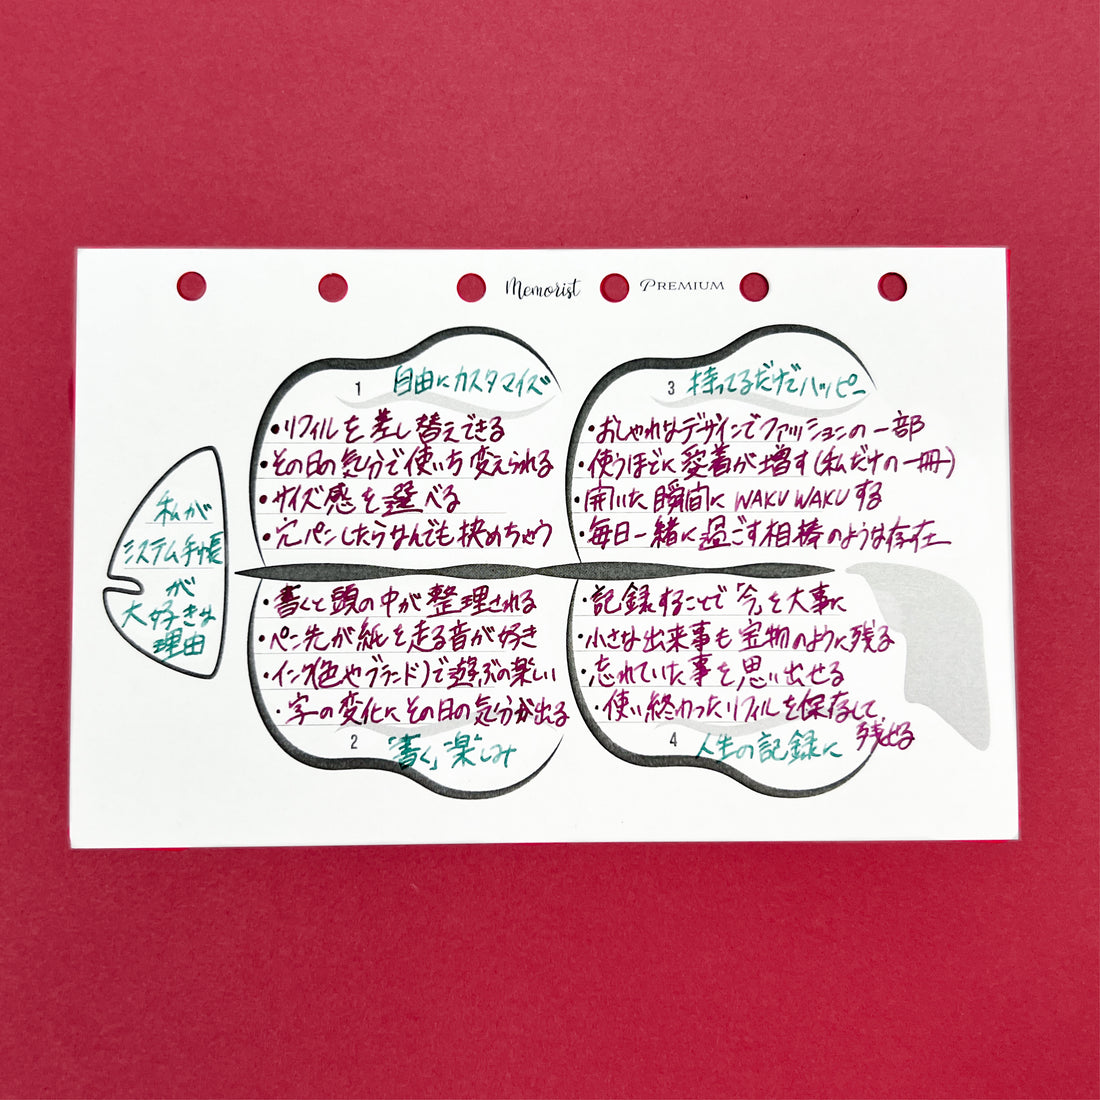 Memorist PREMIUM
私が
システム手帳
が
大好きな
理由
1 自由にカスタマイズ
・リフィルを差し替えできる
・その日の気分で使い方変えられる
・サイズ感を選べる
・穴パンしたらなんでも挟めちゃう
・書くと頭の中が整理される
・ペン先が紙を走る音が好き
・インク(色やブランド)で遊ぶの楽しい
・字の変化にその日の気分が出る
2 「書く」楽しみ
3 持ってるだけでハッピー
・おしゃれなデザインでファッションの一部
・使うほどに愛着が増す(私だけの一冊)
・開いた瞬間にWAKU WAKUする
・毎日一緒に過ごす相棒のような存在
・記録することで「今」を大事に
・小さな出来事も宝物のように残る
・忘れていた事を思い出せる
・使い終わったリフィルを保存して
残せる
4 人生の記録に